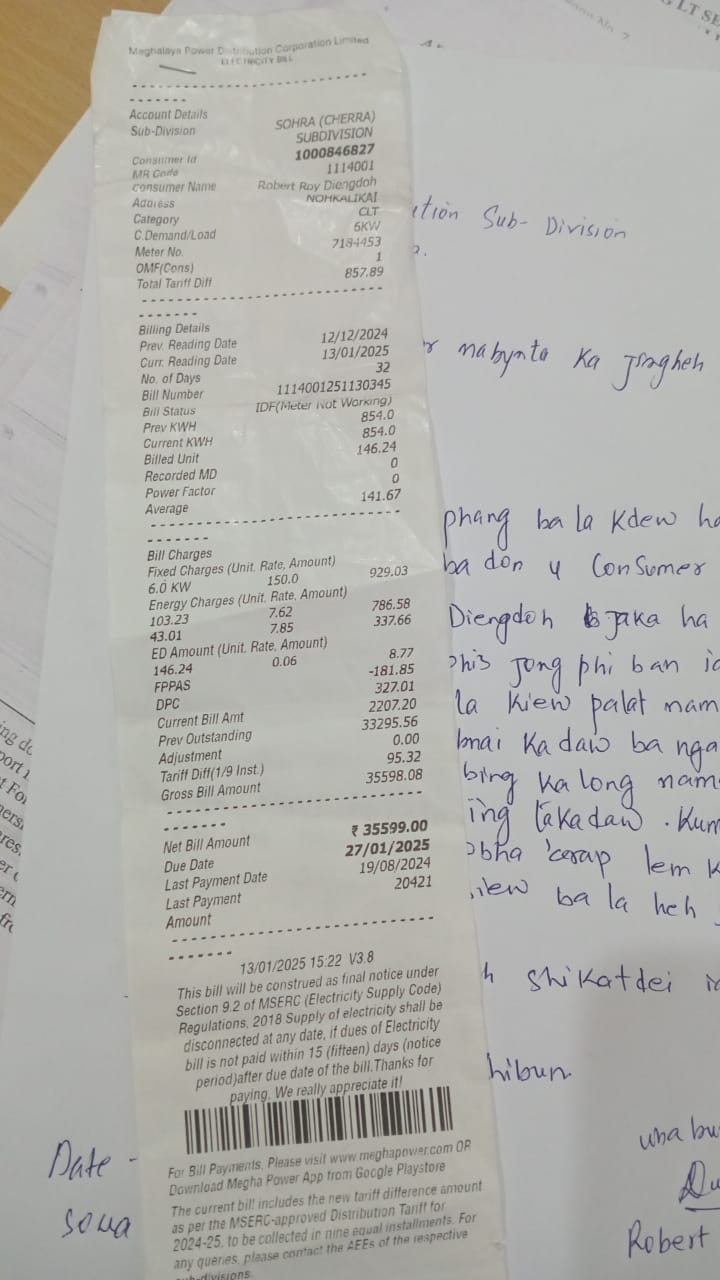 Meghalaya Power Distribution Corporation Limited
ELECTRICITY BILL
Account Details
Sub-Division SOHRA (CHERRA) SUBDIVISION
Consumer Id 1000846827
MR Code 1114001
Consumer Name Robert Roy Diengdoh
Address NOHKALIKAI
Category CLT
C.Demand/Load 6KW
Meter No. 7184453
OMF(Cons) 1
Total Tariff Diff 857.89
Billing Details
Prev. Reading Date 12/12/2024
Curr. Reading Date 13/01/2025
No. of Days 32
Bill Number 1114001251130345
Bill Status IDF(Meter Not Working)
Prev KWH 854.0
Current KWH 854.0
Billed Unit 146.24
Recorded MD 0
Power Factor 0
Average 141.67
Bill Charges
Fixed Charges (Unit. Rate, Amount)
6.0 KW 150.0 929.03
Energy Charges (Unit. Rate, Amount)
103.23 7.62 786.58
43.01 7.85 337.66
ED Amount (Unit. Rate, Amount)
146.24 0.06 8.77
FPPAS -181.85
DPC 327.01
Current Bill Amt 2207.20
Prev Outstanding 33295.56
Adjustment 0.00
Tariff Diff(1/9 Inst.) 95.32
Gross Bill Amount 35598.08
Net Bill Amount ₹ 35599.00
Due Date 27/01/2025
Last Payment Date 19/08/2024
Last Payment Amount 20421
13/01/2025 15:22 V3.8
This bill will be construed as final notice under
Section 9.2 of MSERC (Electricity Supply Code)
Regulations, 2018 Supply of electricity shall be
disconnected at any date, if dues of Electricity
bill is not paid within 15 (fifteen) days (notice
period)after due date of the bill.Thanks for
paying. We really appreciate it!
For Bill Payments, Please visit www.meghapower.com OR
Download Megha Power App from Google Playstore
The current bill includes the new tariff difference amount
as per the MSERC-approved Distribution Tariff for
2024-25, to be collected in nine equal installments. For
any queries, please contact the AEEs of the respective
sub-divisions
LT
Sub- Division
mabynta ka jingheh
phang ba la kdew
ba don u Consumer
Diengdoh jaka ha
jong phi ban
la kiew palat
ka daw ba nga
bing ka long
lem
ba la heh
shikatdei
hibun
Date -
Robert